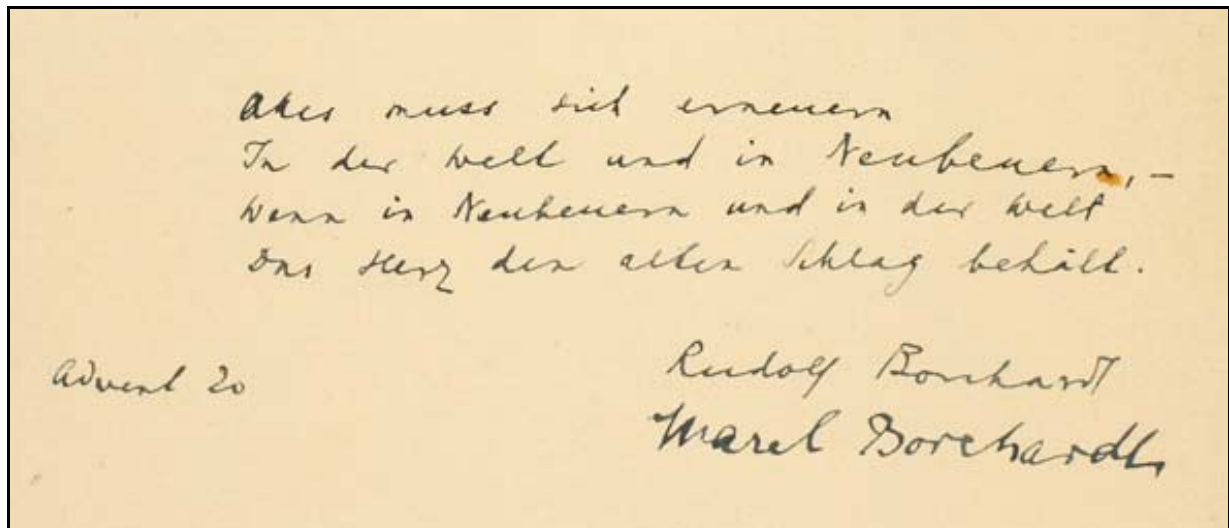 Alles muss sich erneuern
In der Welt und in Neubeuern, –
Wenn in Neubeuern und in der Welt
Das Herz den alten Schlag behält.
Advent 20
Rudolf Borchardt
Marel Borchardt